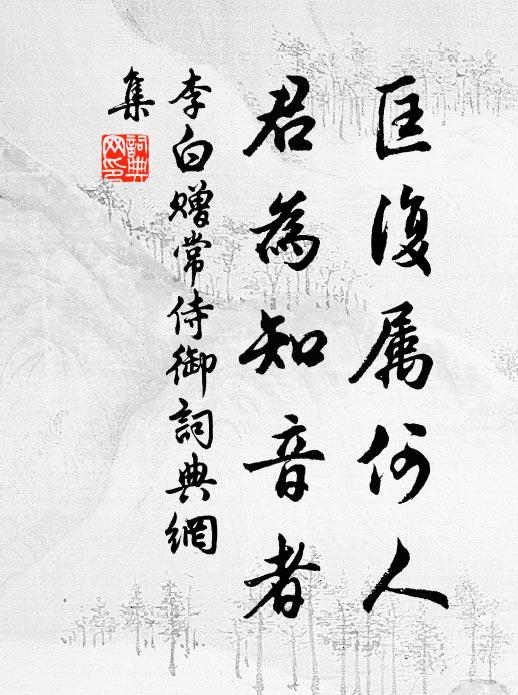 匡復属何人
君為知音者
李白赠常侍御詞典網
集
詞典
网印